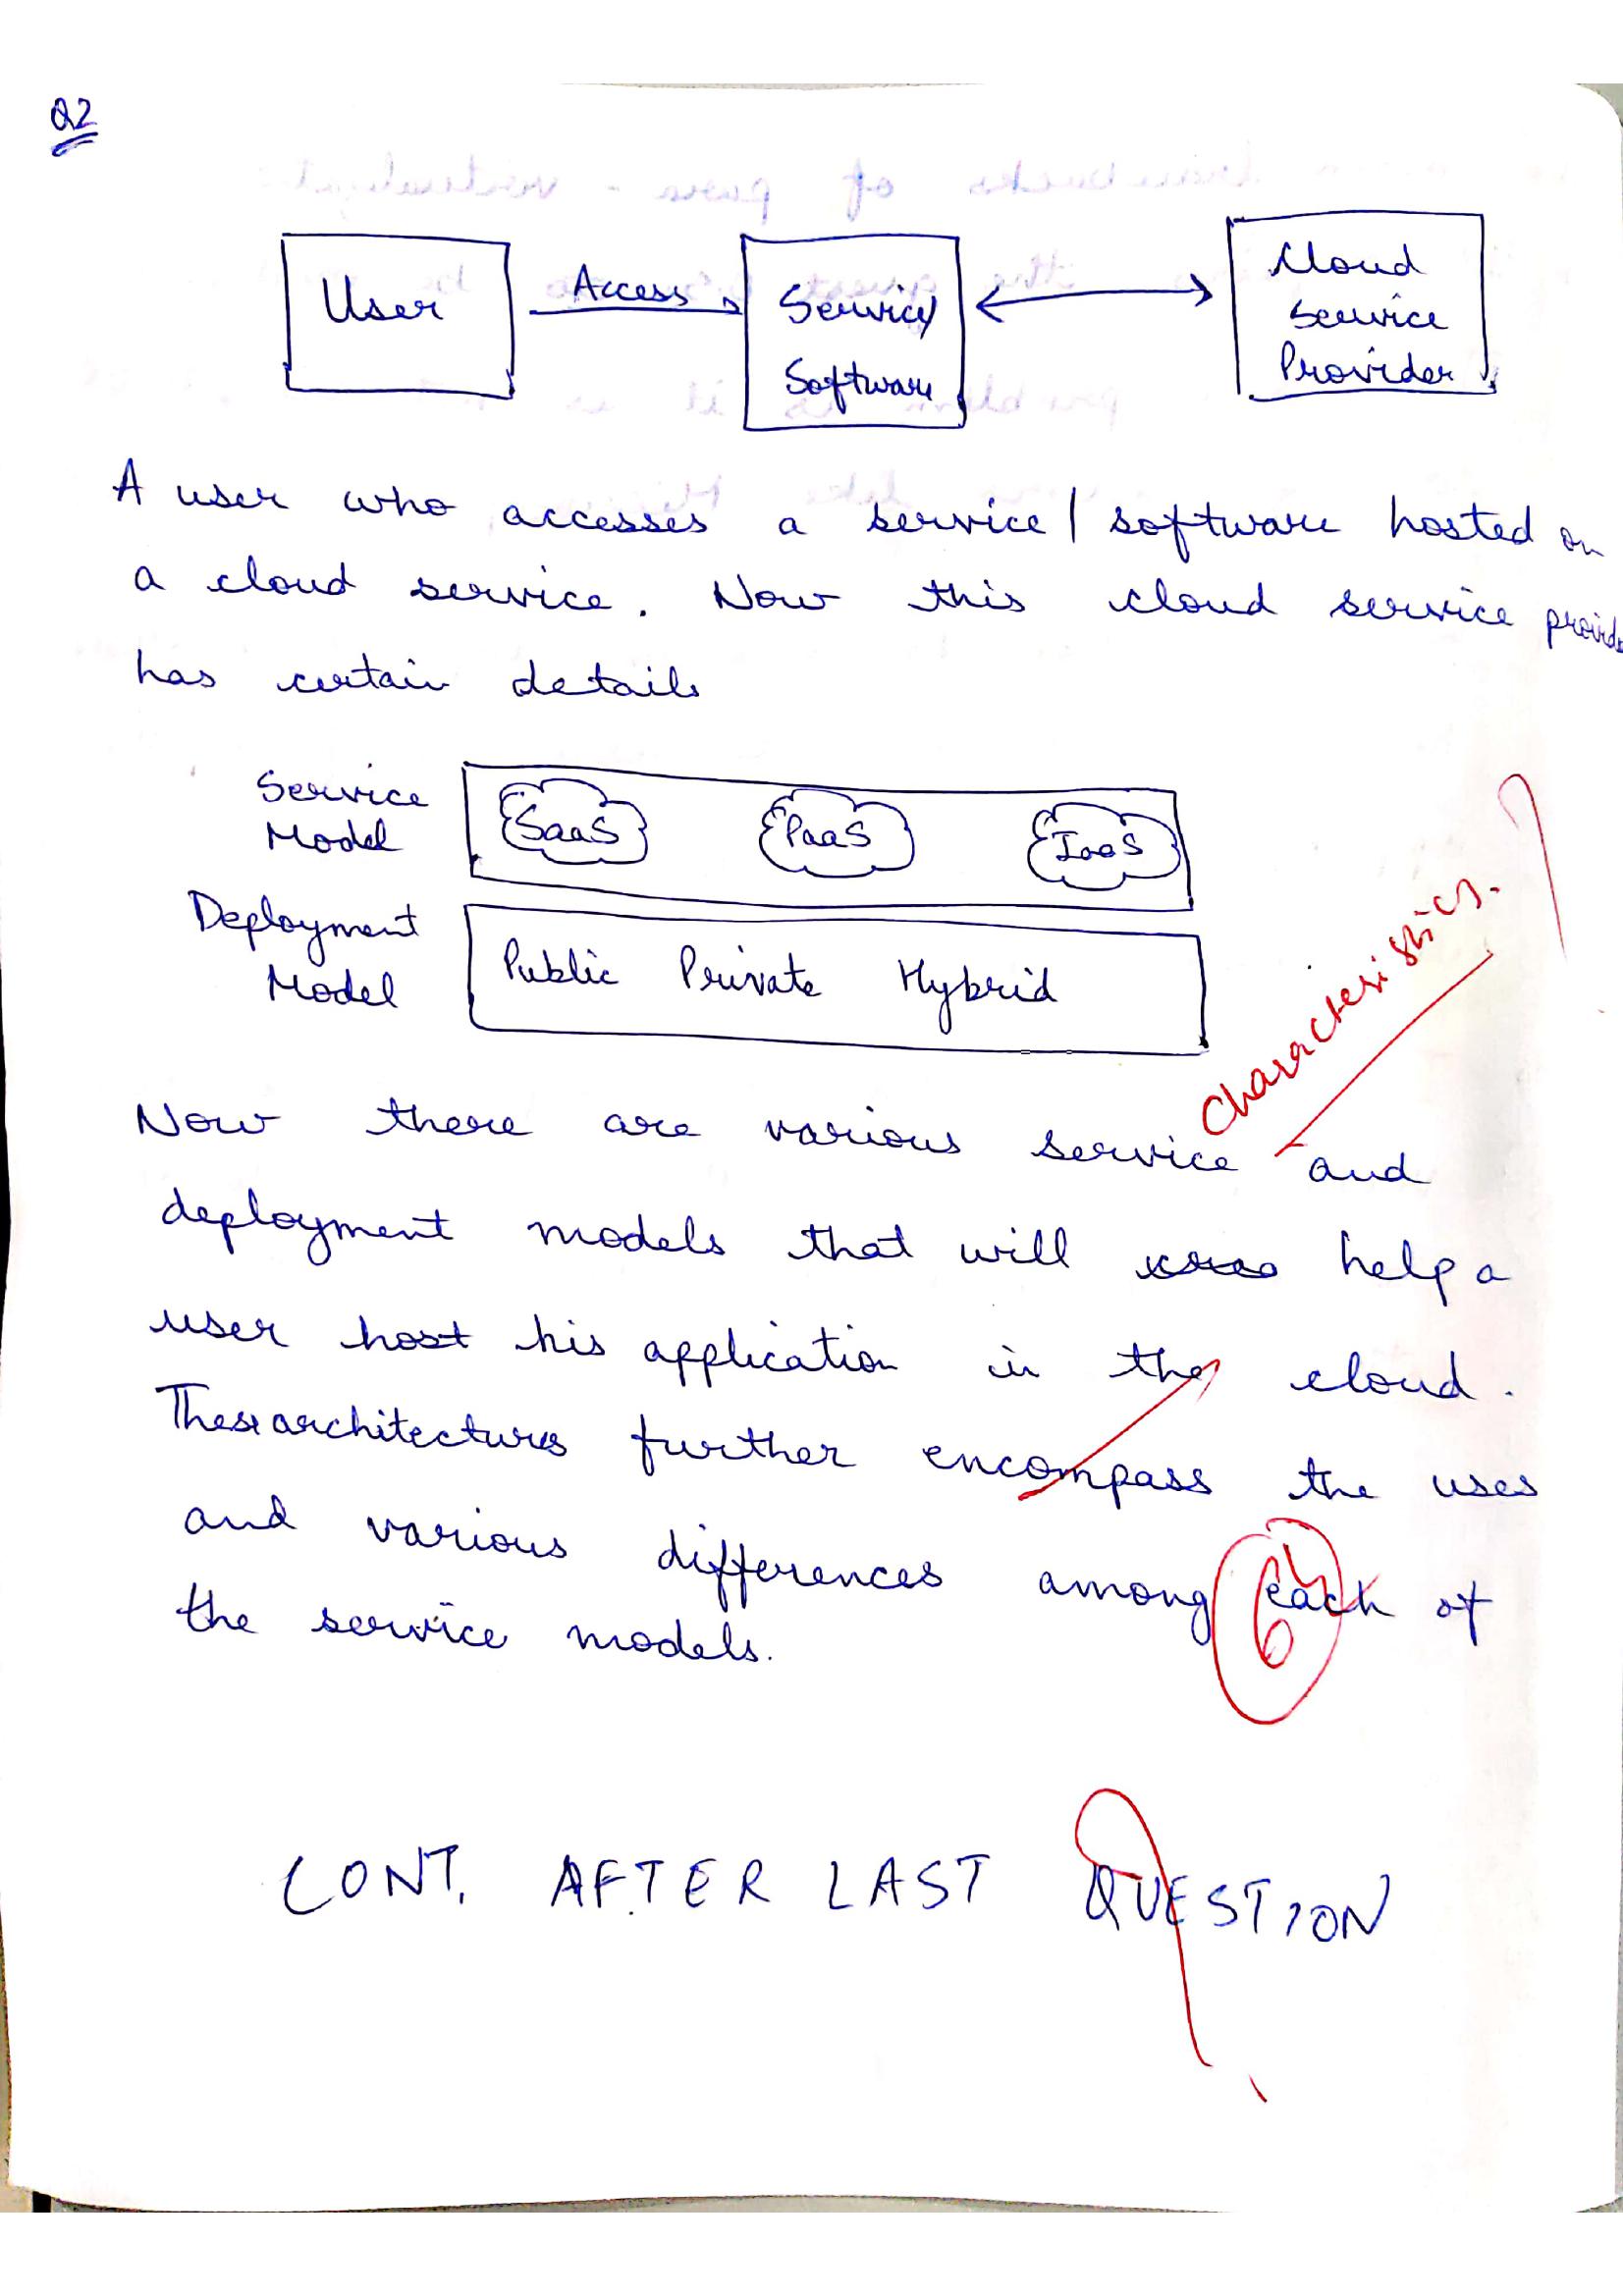 Q2
User
Access
Service/
Software
Cloud
Service
Provider
A user who accesses a service / software hosted on
a cloud service. Now this cloud service
has certain details
Service
Model
SaaS PaaS IaaS
Deployment
Model
Public Private Hybrid
characteristics.
Now there are various service and
deployment models that will help a
user host his application in the cloud.
These architectures further encompass the uses
and various differences among each of
the service models.
6
CONT. AFTER LAST QUESTION